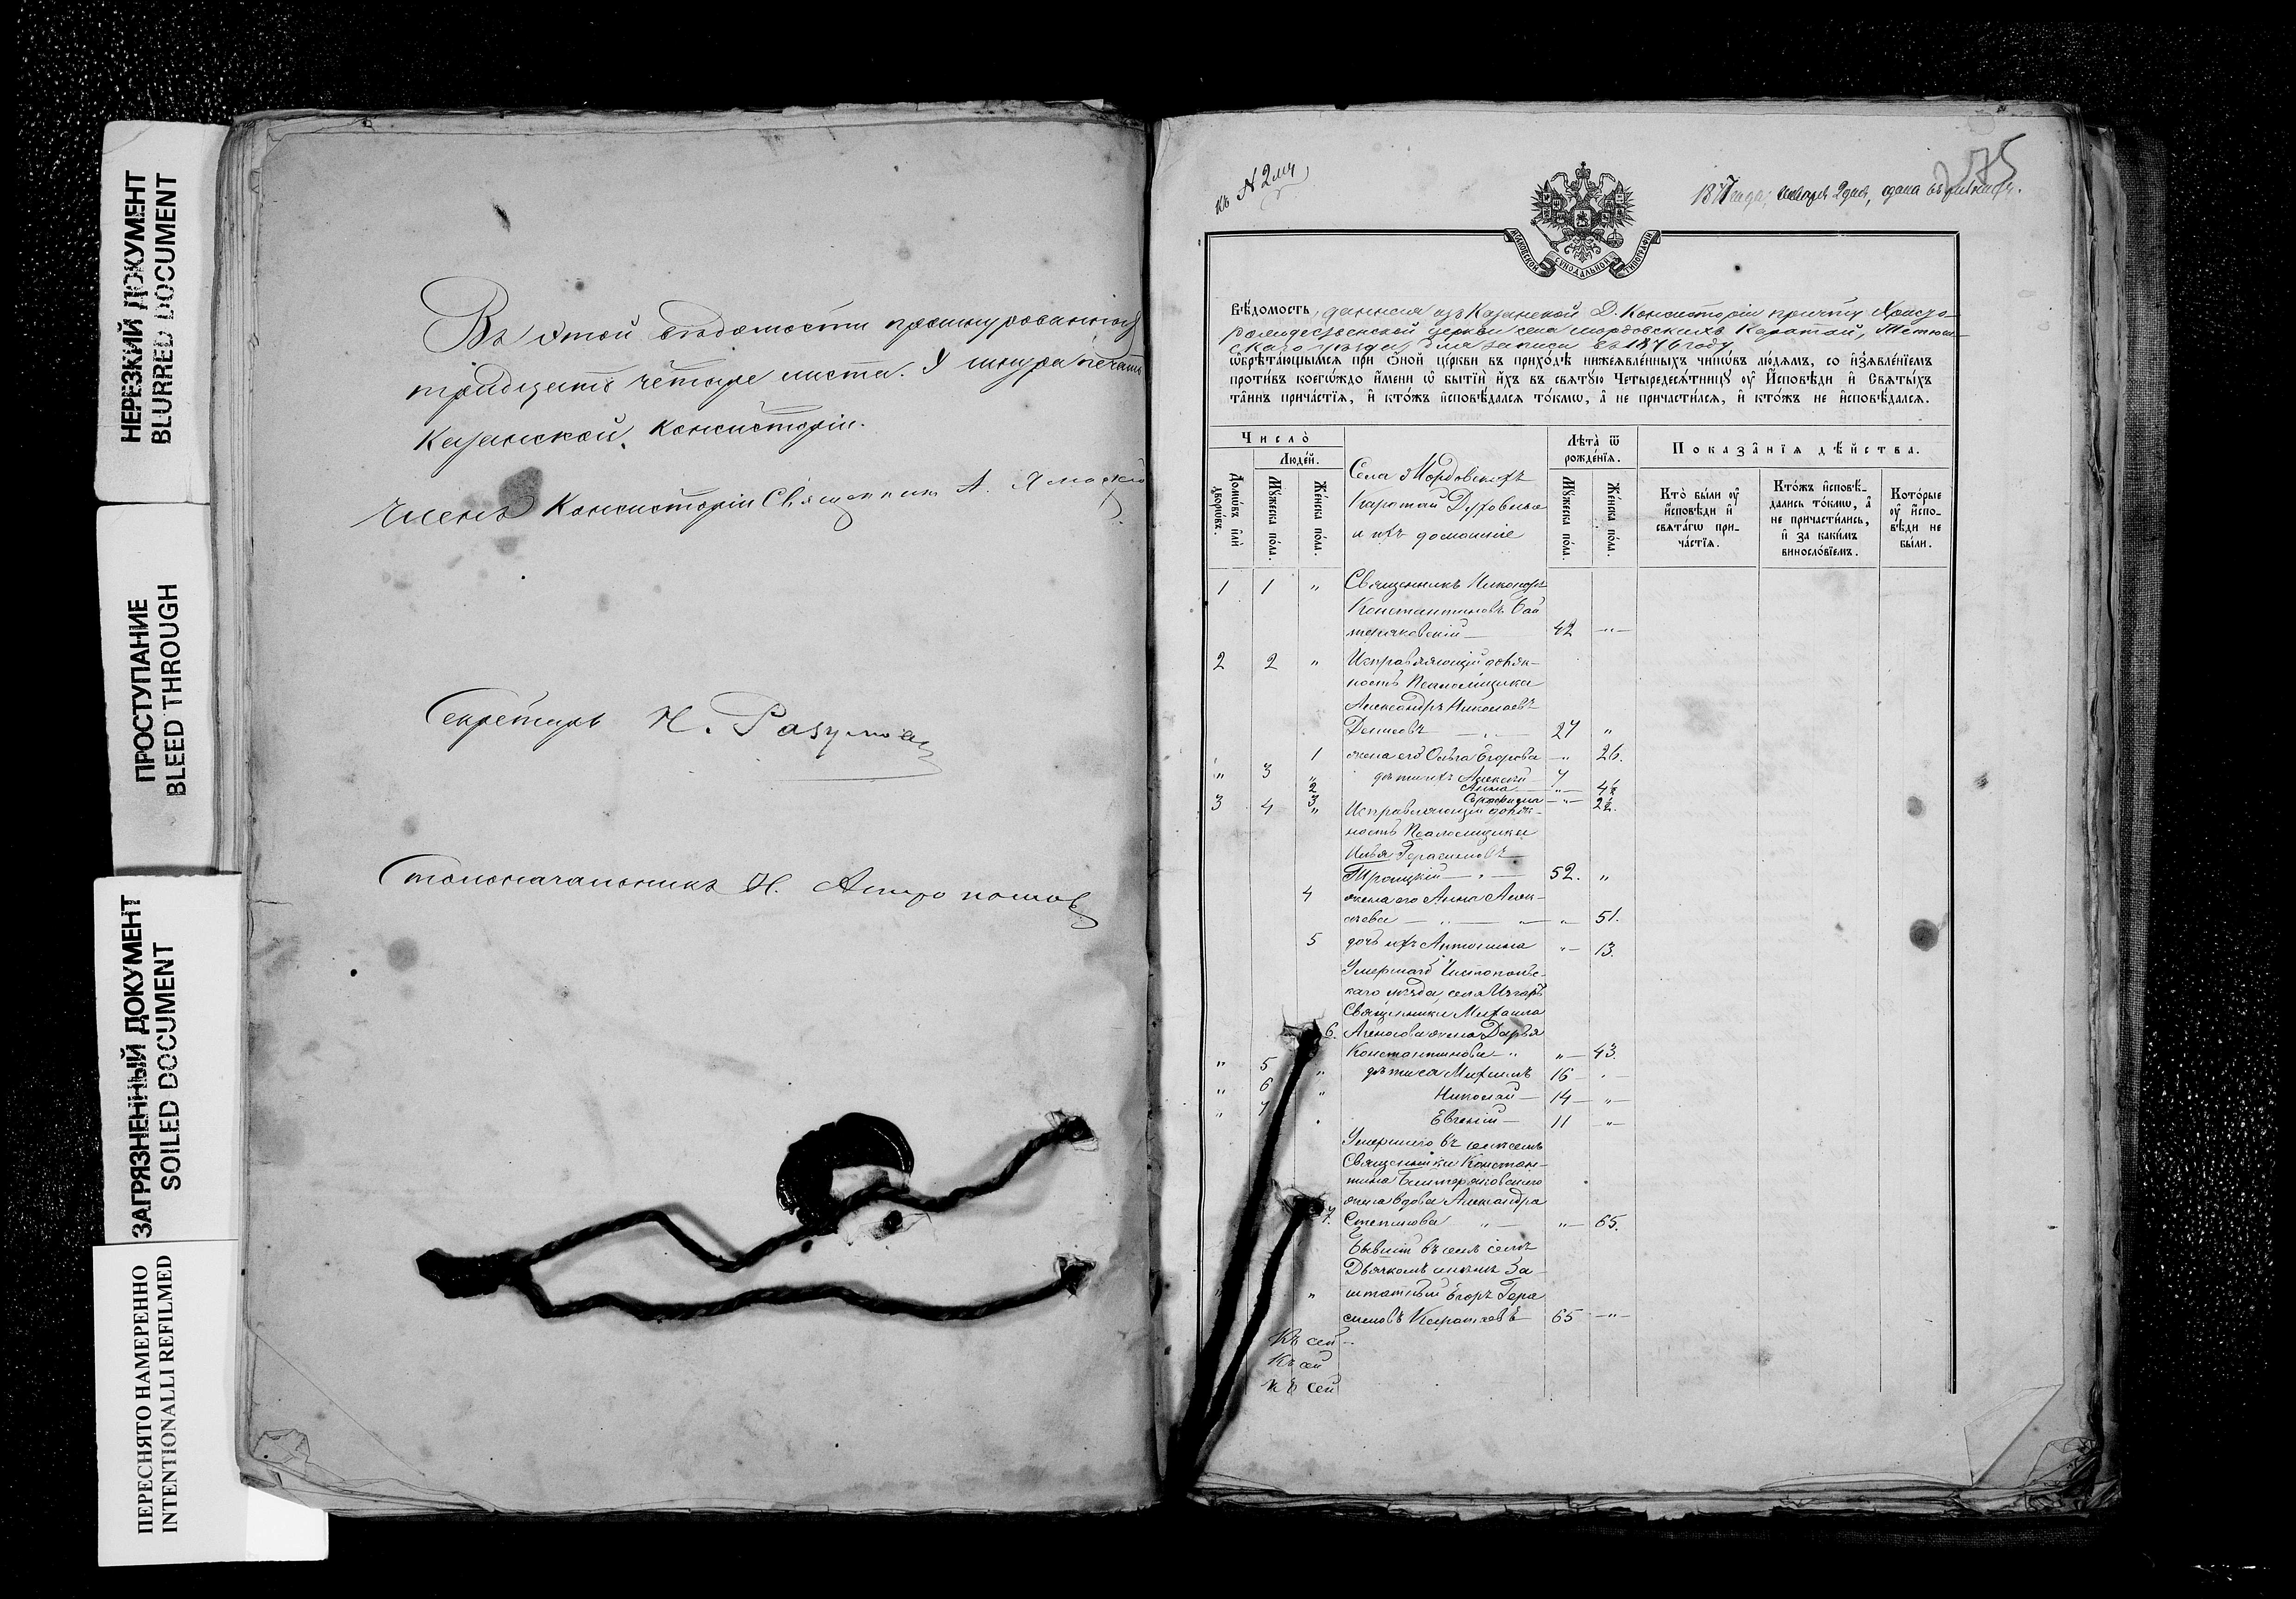 НЕРЕЗКИЙ ДОКУМЕНТ
BLURRED DOCUMENT
ПРОСТУПАНИЕ
BLEED THROUGH
ЗАГРЯЗНЕННЫЙ ДОКУМЕНТ
SOILED DOCUMENT
ПЕРЕСНЯТО НАМЕРЕННО
INTENTIONALLI REFILMED
Въ этой вѣдомости прошнурованныхъ
тридцать четыре листа. У шнура печать
Казанской Консисторіи.
Членъ Консисторіи Священникъ А.
Секретарь Н. Разумовъ
Столоначальникъ Н.
къ № 2му
275
1877 года, января 2 дня, сдана въ
МОСКОВСКОЙ СѴНОДАЛЬНОЙ ТИПОГРАФІИ
Вѣ́домость, данная изъ Казанской Д. Консисторіи причту Христо-
рождественской церкви села Мордовскихъ Каратай, Тетюш-
скаго уѣзда, для записи въ 1876 году
ѡ҆брѣта́ющымся при ѻ҆́ной це́ркви въ прихо́дѣ нижеѧвле́нныхъ чинѡ́въ лю́дямъ, со и҆з̾ѧвле́нїемъ
про́тивъ коегѡ́ждо и҆́мени ѡ҆ бытїѝ и҆́хъ въ свѧту́ю Четыредесѧ́тницу ᲂу҆ И҆́сповѣди и҆ Свѧты́хъ
та̑инъ прича́стїѧ, и҆ кто́жъ и҆сповѣ́далсѧ то́кмѡ, а҆ не причасти́лсѧ, и҆ кто́жъ не и҆сповѣ́далсѧ.
Число̀
Люде́й.
Домѡ́въ и҆лѝ дворѡ́въ.
Мꙋ́жеска по́ла.
Же́нска по́ла.
Села Мордовскихъ
Каратай Духовные
и ихъ домашніе
Лѣ́та ѿ рожде́нїѧ.
Мꙋ́жеска по́ла.
Же́нска по́ла.
Показа̑нїѧ дѣ́йства.
Кто̀ бы́ли ᲂу҆ и҆́сповѣди и҆ свѧта́гѡ при-ча́стїѧ.
Кто́жъ и҆сповѣ́-дались то́кмѡ, а҆ не причасти́лись, и҆ за каки́мъ виносло́вїемъ.
Кото́рые ᲂу҆ и҆́спо-вѣди не бы́ли.
1 1 " Священникъ Никаноръ
Константиновъ
42 -"-
2 2 " Исправляющій долж-
ность Псаломщика
Александръ Николаевъ
Денисовъ 27 "
1 жена его Ольга Егорова -"- 26.
" 3 " дѣти ихъ Алексѣй 7
2 Анна -"- 4½
3 -"- 2½.
3 4 " Исправляющій долж-
ность Псаломщика
Илья Герасимовъ
Троицкій 52. "
4 жена его Анна Алек-
сѣева " 51.
5 дочь ихъ Антонина "- 13.
Умершаго Чистополь-
скаго уѣзда, села
Священника Михаила
6. жена Дарья
Константинова "- 43.
" 5 " дѣти ея Михаилъ 16 -
" 6 " Николай 14 - "-
" 7 Евгеній 11 "-
Умершаго въ семъ селѣ
Священника Констан-
тина
жена вдова Александра
7. Степанова "- 65.
Бывшій въ семъ селѣ
Дьячкомъ нынѣ За-
" штатный Егоръ Гера
симовъ Каратаевъ 65 -"-
Къ сей
Къ сей
Къ сей